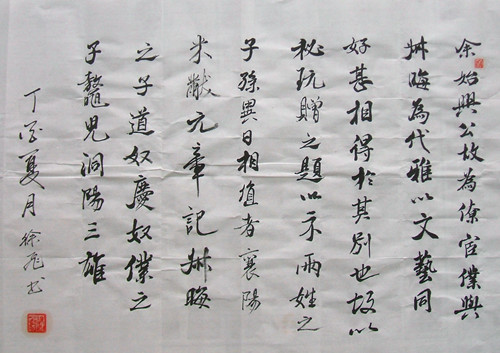 余始興公故為僚宦僕與
叔晦為代雅以文藝同
好甚相得於其別也故以
秘玩贈之題以示兩姓之
子孫異日相值者襄陽
米黻元章記叔晦
之子道奴慶奴僕之
子鼇兒洞陽三雄
丁 夏月 徐 书